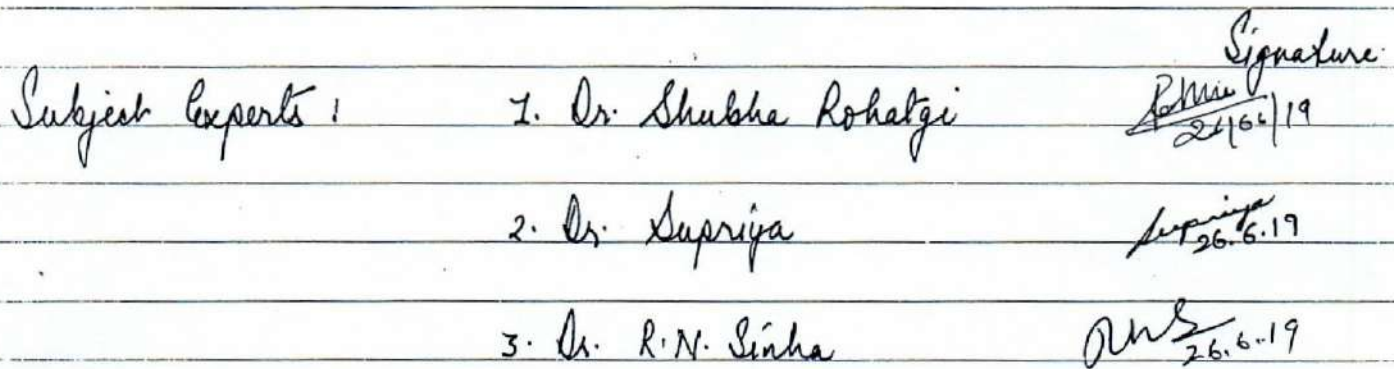 Signature
Subject Experts : 1. Dr. Shubha Rohatgi
26/06/19
2. Dr. Supriya Supriya
26.6.19
3. Dr. R.N. Sinha
26.6.19